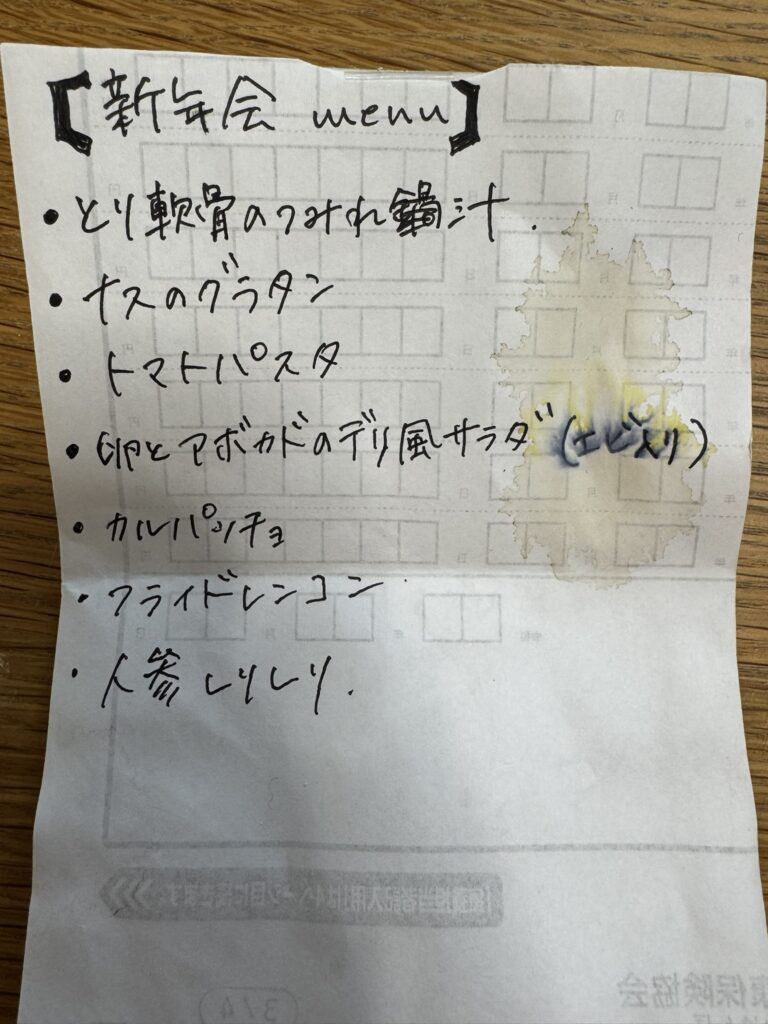 【新年会 menu】
・とり軟骨のつみれ鍋汁.
・ナスのグラタン
・トマトパスタ
・卵とアボカドのデリ風サラダ(エビ入り)
・カルパッチョ
・フライドレンコン
・人参しりしり.
3/4
保険協会